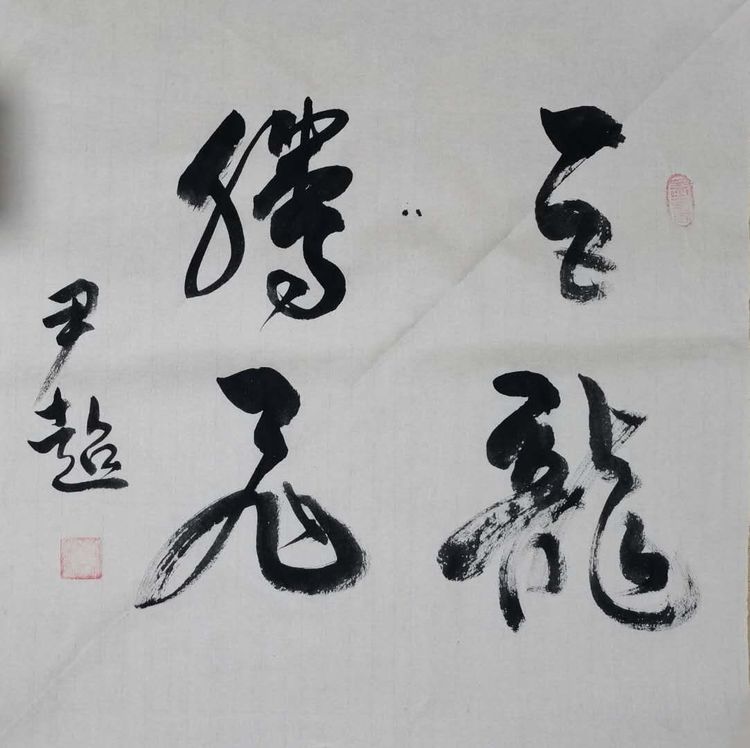 巨龍
騰飛
尹超